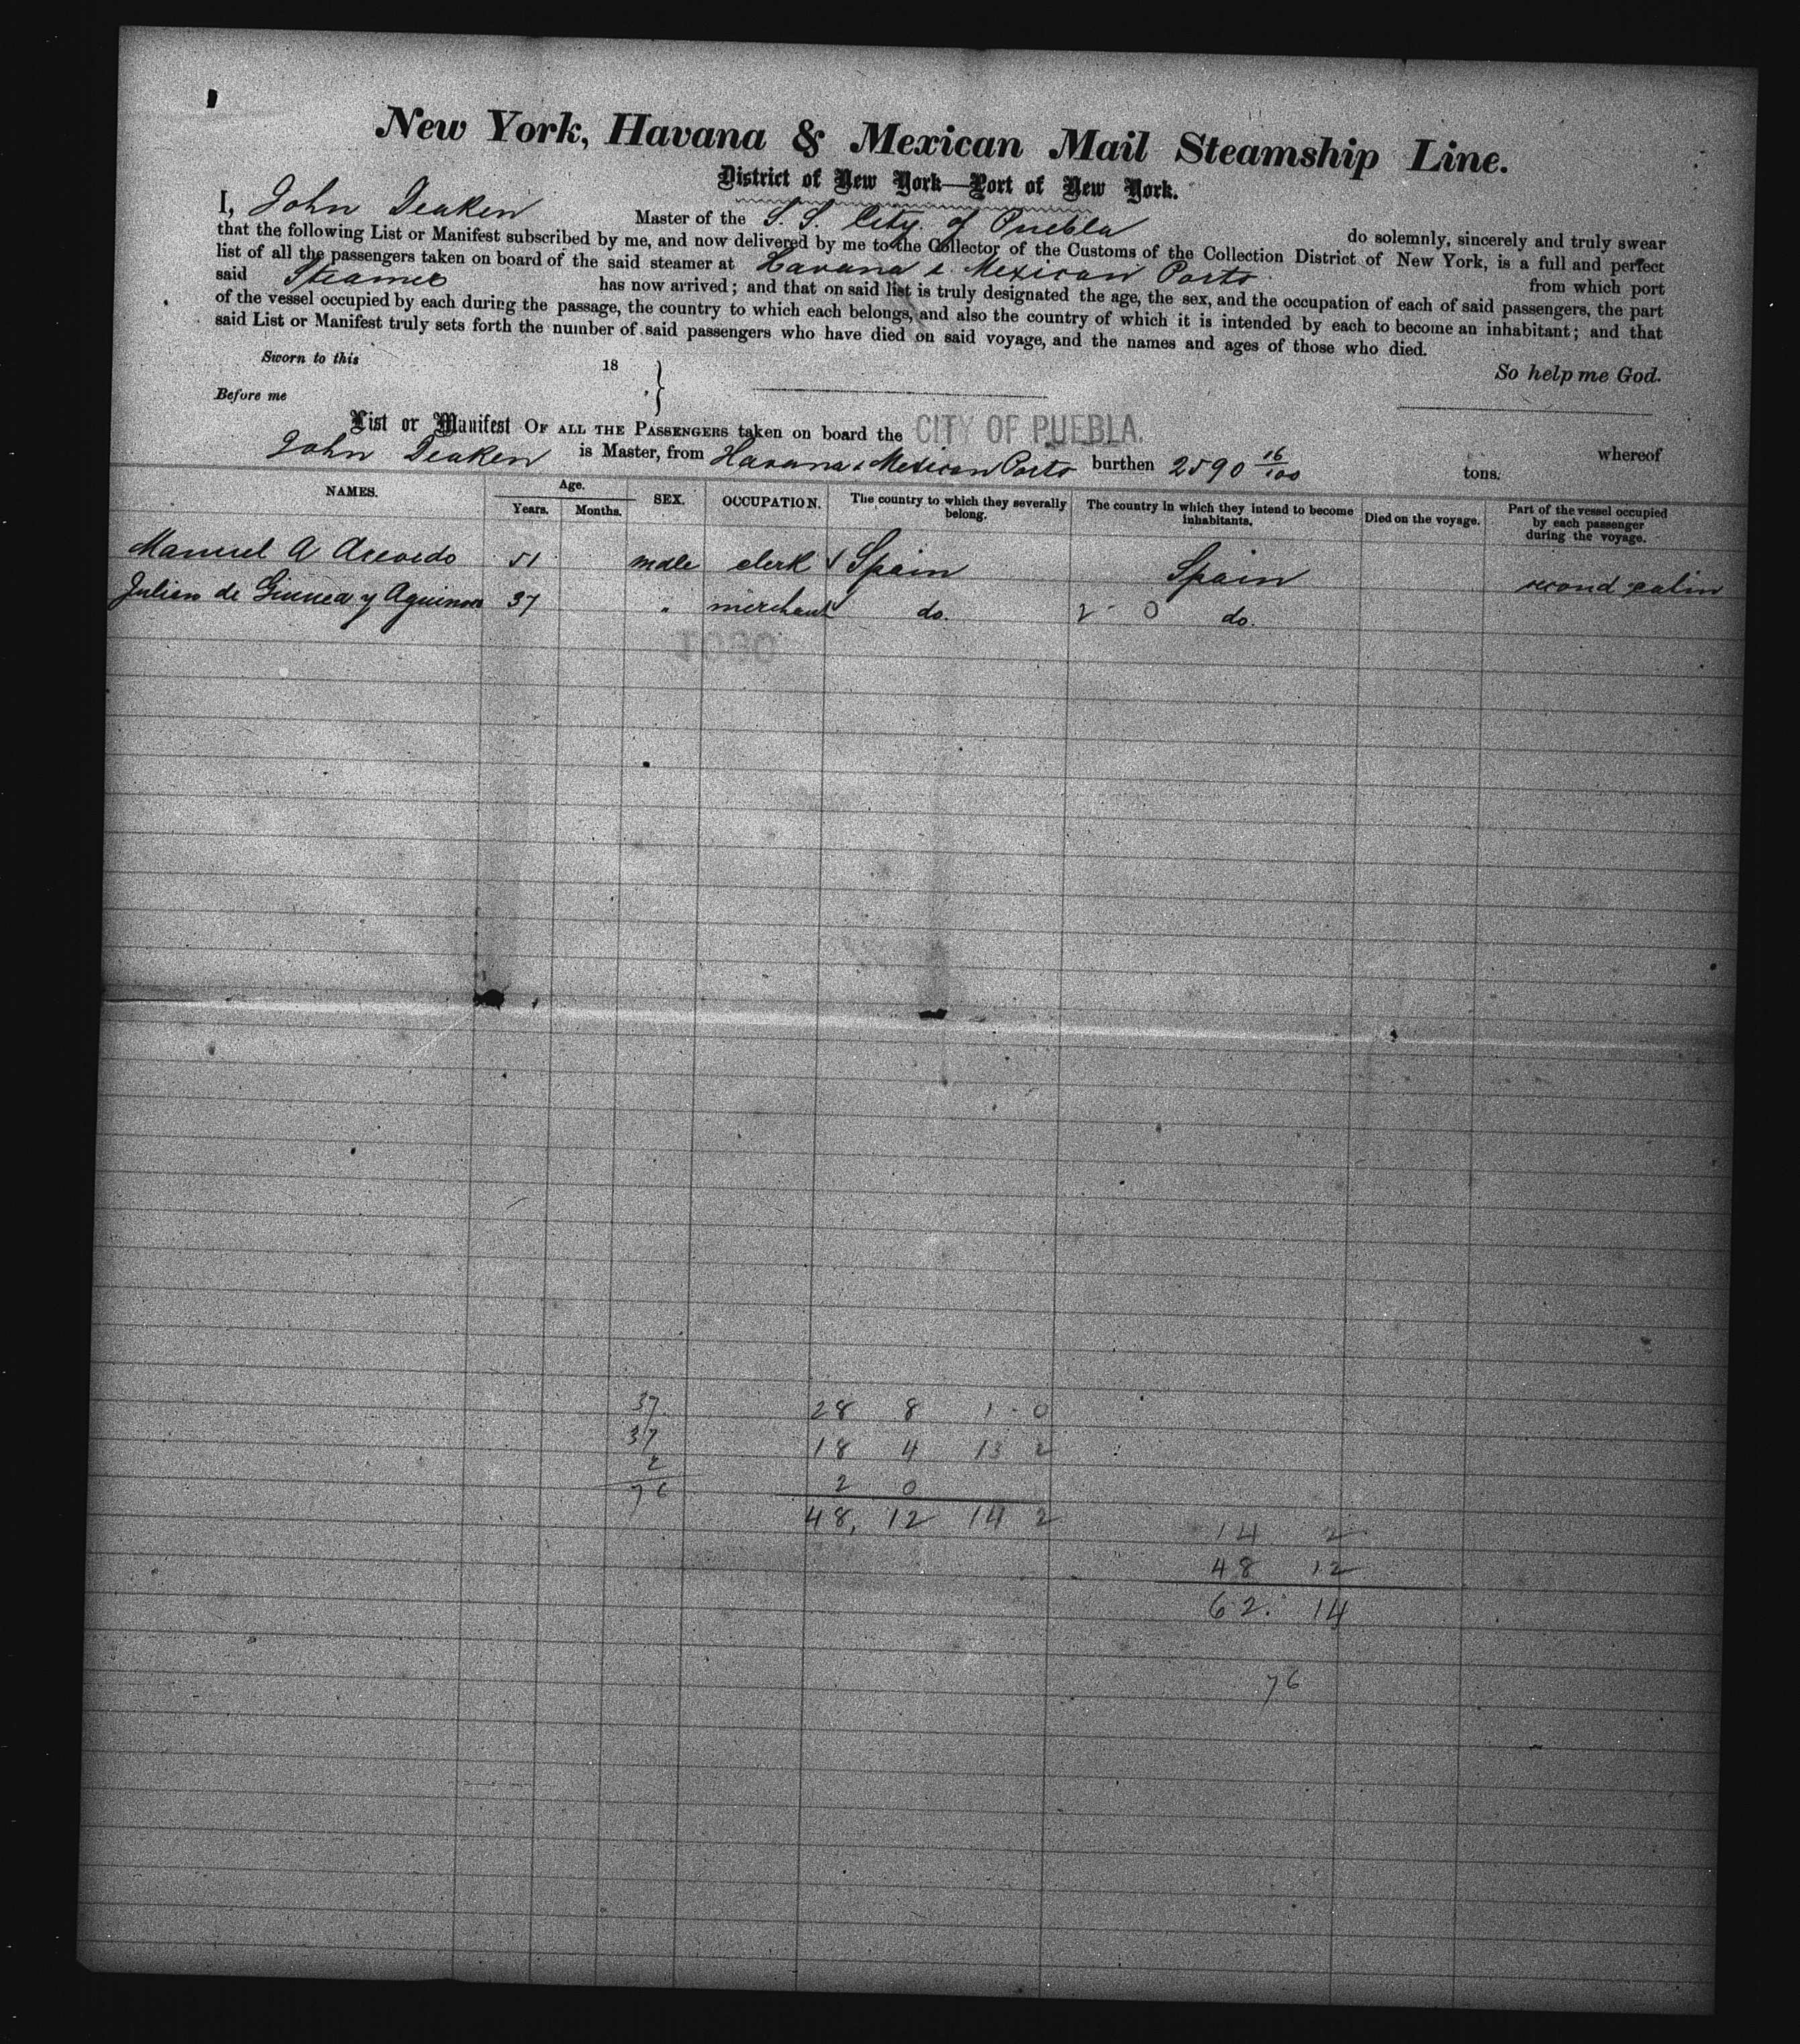 New York, Havana & Mexican Mail Steamship Line.
District of New York—Port of New York.
I, John Deaken Master of the S. S. City of Puebla do solemnly, sincerely and truly swear
that the following List or Manifest subscribed by me, and now delivered by me to the Collector of the Customs of the Collection District of New York, is a full and perfect
list of all the passengers taken on board of the said steamer at Havana & Mexican Ports from which port
said Steamer has now arrived; and that on said list is truly designated the age, the sex, and the occupation of each of said passengers, the part
of the vessel occupied by each during the passage, the country to which each belongs, and also the country of which it is intended by each to become an inhabitant; and that
said List or Manifest truly sets forth the number of said passengers who have died on said voyage, and the names and ages of those who died.
So help me God.
Sworn to this 18
Before me
List or Manifest OF ALL THE PASSENGERS taken on board the CITY OF PUEBLA. whereof
John Deaken is Master, from Havana & Mexican Ports burthen 2590 16/100 tons.
NAMES. Age. Years. Months. SEX. OCCUPATION. The country to which they severally belong. The country in which they intend to become inhabitants. Died on the voyage. Part of the vessel occupied by each passenger during the voyage.
Manuel A Acevedo 51 male clerk Spain Spain second cabin
Julian de Guinea y 37 " merchant do. 2 - 0 do.
37 28 8 1 - 0
37 18 4 13 2
2 2 0
76 48, 12 14 2
14 2
48 12
62. 14
76